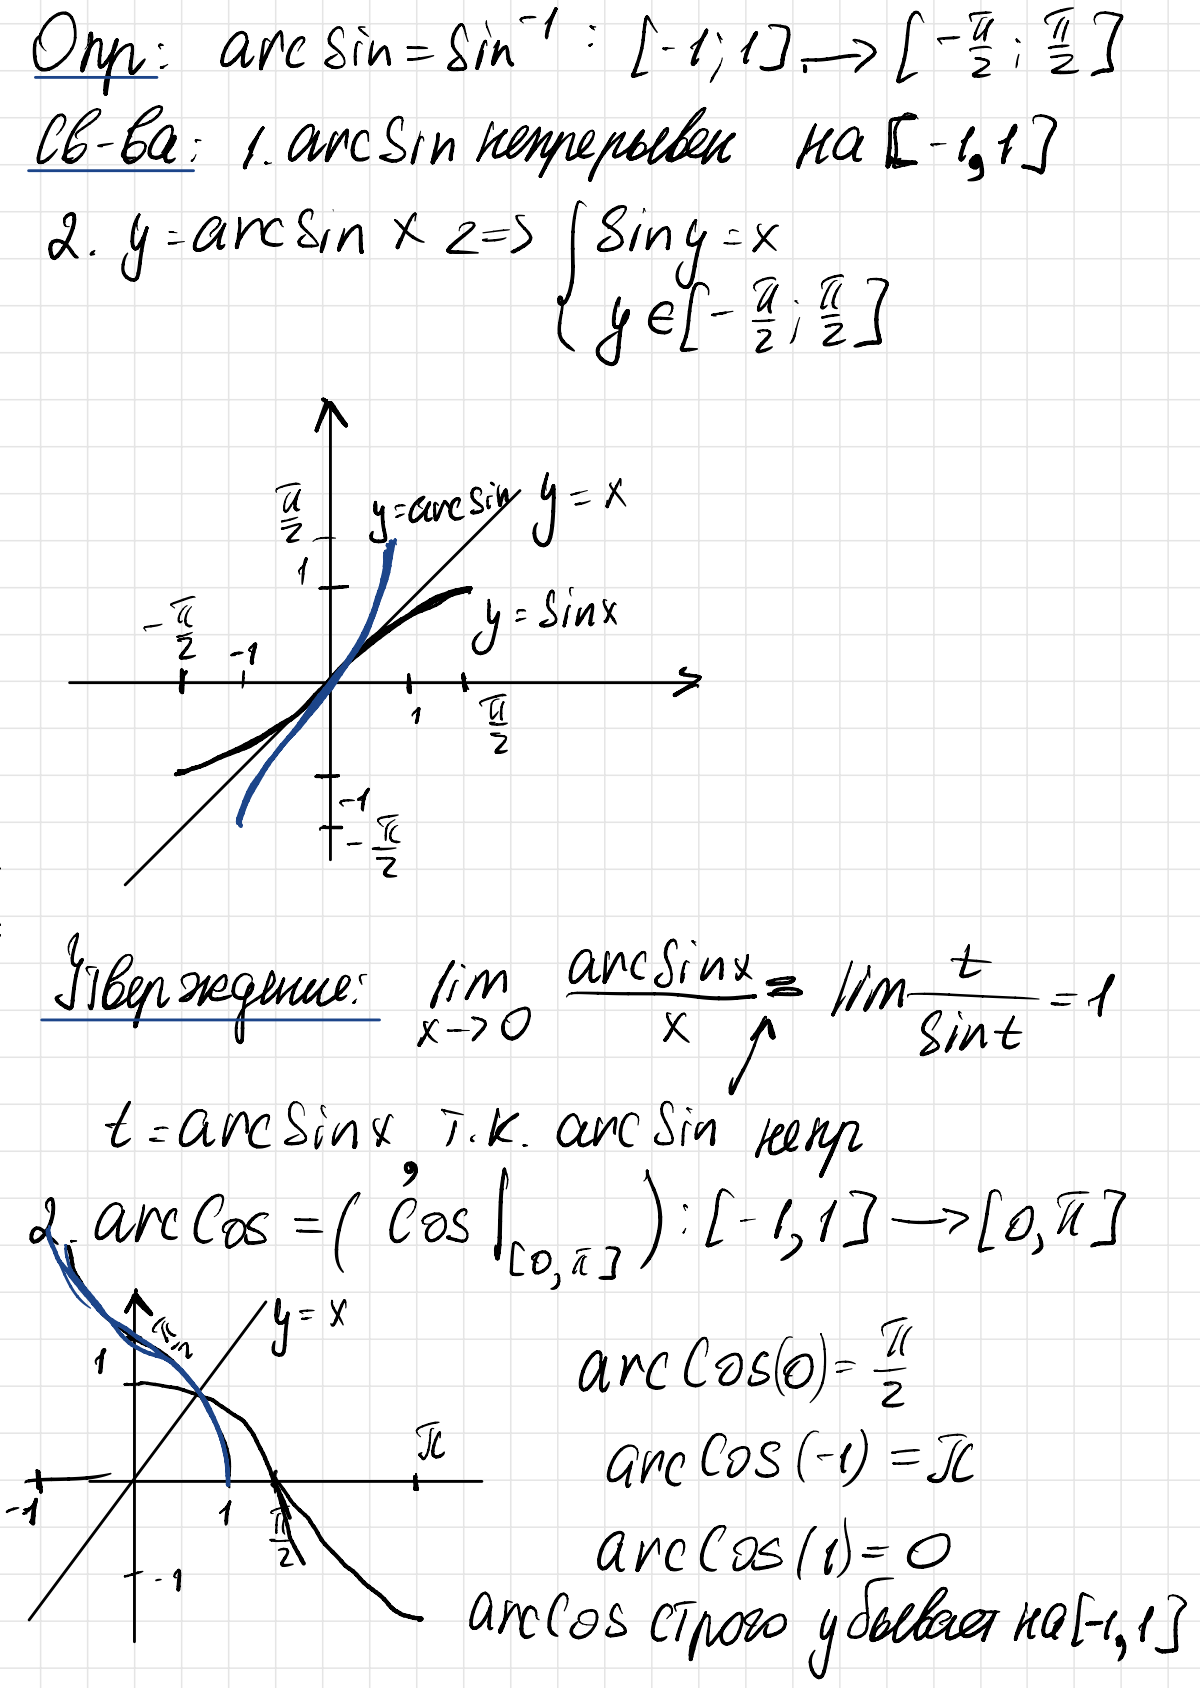 Опр: arcsin = sin⁻¹ : [-1; 1] → [-π/2 ; π/2]
Св-ва: 1. arcsin непрерывен на [-1, 1]
2. y = arcsin x <=> { sin y = x
y ∈ [-π/2 ; π/2]
π/2
y = arcsin
y = x
1
y = sin x
-π/2
-1
1
π/2
-1
-π/2
Утверждение: lim x→0 arcsin x / x = lim t / sin t = 1
t = arcsin x, т.к. arcsin непр
2. arccos = ( cos |[0, π] ) : [-1, 1] → [0, π]
y = x
π/2
1
arccos(0) = π/2
π
arccos(-1) = π
-1
1
π/2
arccos(1) = 0
-1
arccos строго убывает на [-1, 1]